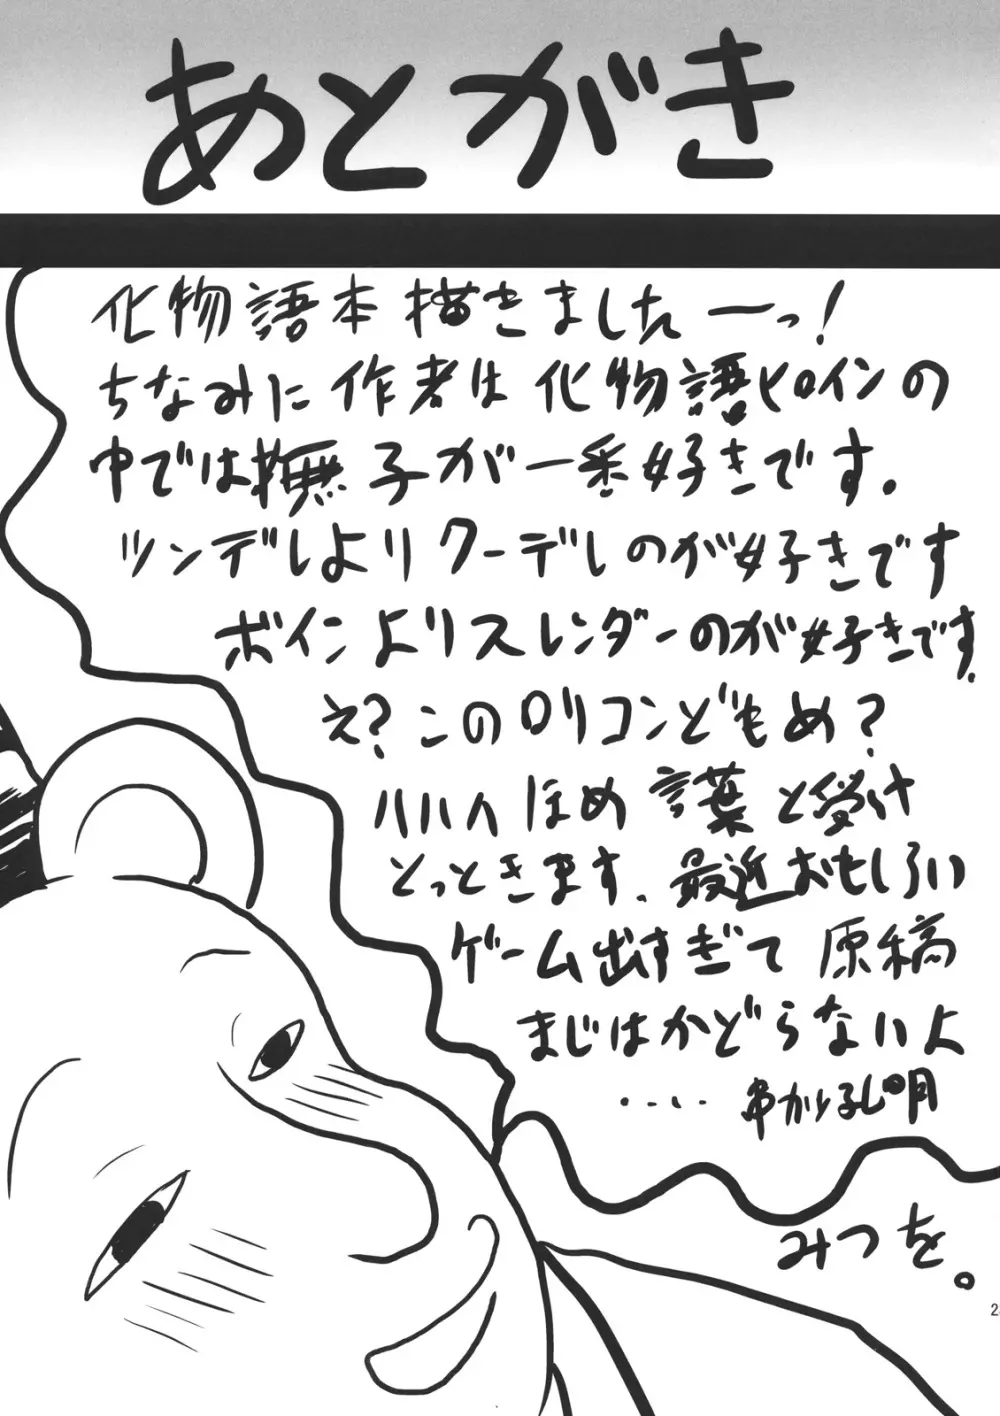 あとがき
化物語本描きましたーっ！
ちなみに作者は化物語ヒロインの
中では撫子が一番好きです。
ツンデレよりクーデレのが好きです
ボインよりスレンダーのが好きです。
え？このロリコンどもめ？
ハハハほめ言葉と受け
とっときます。最近おもしろい
ゲーム出すぎて原稿
まじはかどらないよ
‥‥ 串かつ孔明
みつを。